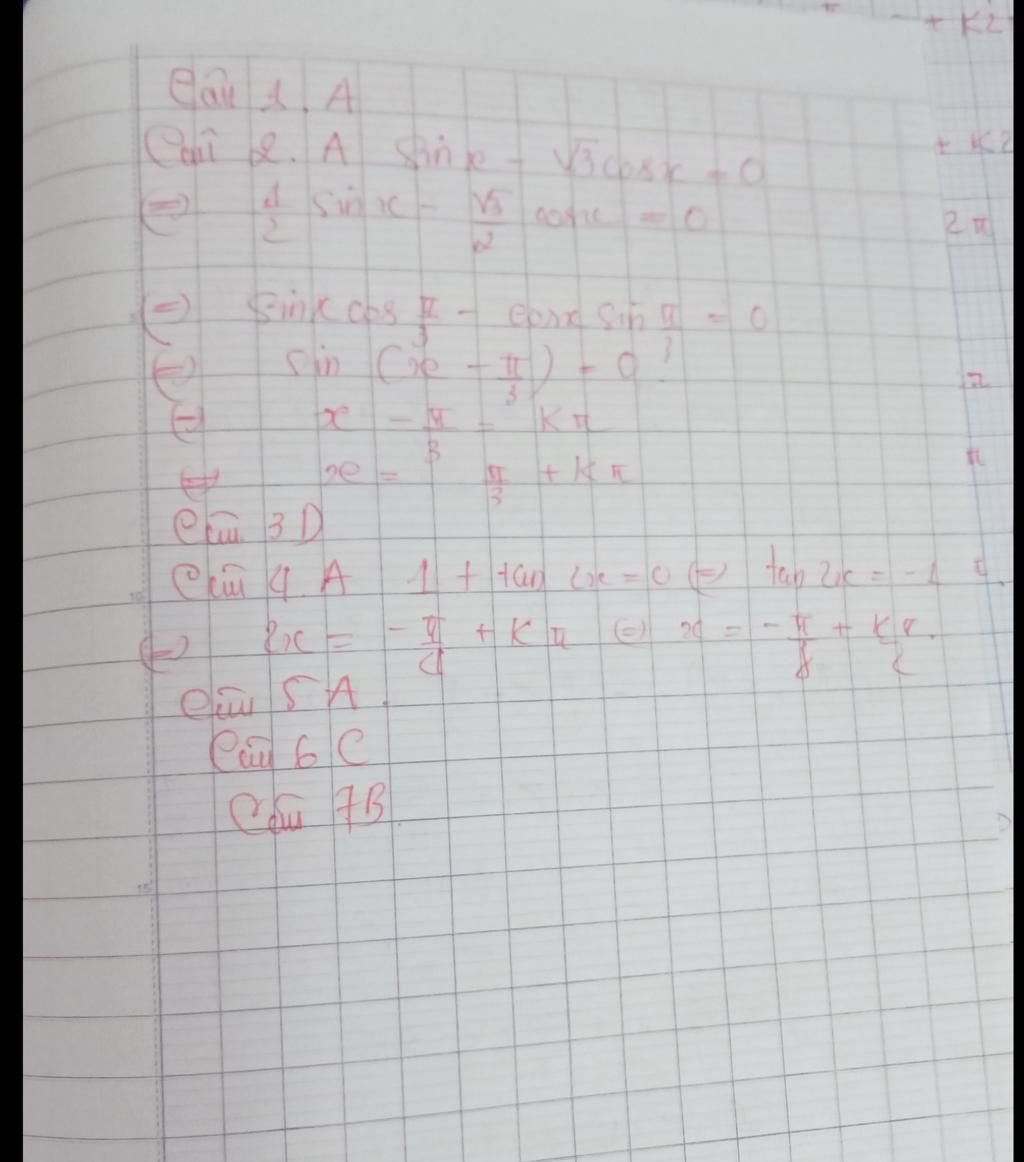 Câu 1. A
Câu 2. A sin x - √3 cos x = 0
⇔ 1/2 sin x - √3/2 cos x = 0
⇔ sin x cos π/3 - cos x sin π/3 = 0
⇔ sin (x - π/3) = 0
⇔ x - π/3 = Kπ
⇔ x = π/3 + Kπ
Câu 3 D
Câu 4. A 1 + tan 2x = 0 ⇔ tan 2x = -1
⇔ 2x = -π/4 + Kπ ⇔ x = -π/8 + Kπ/2.
Câu 5 A.
Câu 6 C
Câu 7B
+ K2
+ K2
2π
π
π